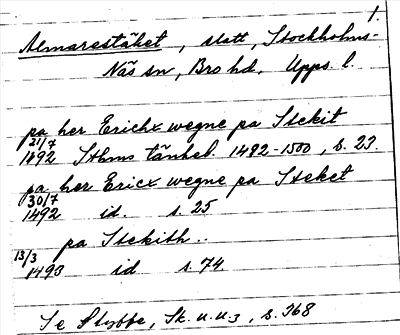 1.
Almarestäket, slått, Stockholms-
Näs sn, Bro hd. Upps. l.
pa her Erichx wegne pa Stekit
21/7
1492 Sthms tänkeb. 1492-1500, s. 23.
pa her Ericx wegne pa Steket
30/7
1492 id. s. 25
pa Stekith..
13/3
1493 id s. 74
Se Styffe, Sk. u. u. 3, s. 368